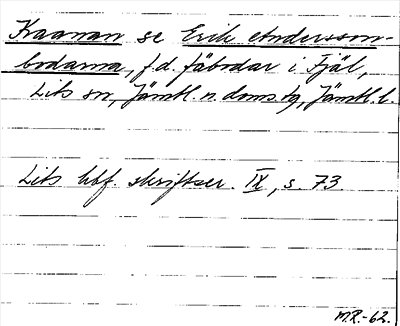 Kaanan se Erik Andersson-
bodarna, f.d. fäbodar i Fjäl,
Lits sn, Jämtl. n. doms.tg, Jämtl. l.
Lits hbf. skriftser. IX, s. 73
M.R.-62.